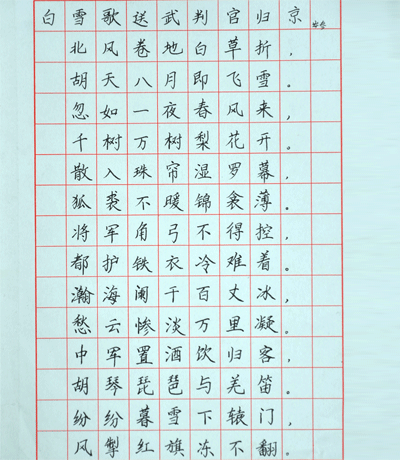 白雪歌送武判官归京 岑参
北风卷地白草折,
胡天八月即飞雪。
忽如一夜春风来,
千树万树梨花开。
散入珠帘湿罗幕,
狐裘不暖锦衾薄。
将军角弓不得控,
都护铁衣冷难着。
瀚海阑干百丈冰,
愁云惨淡万里凝。
中军置酒饮归客,
胡琴琵琶与羌笛。
纷纷暮雪下辕门,
风掣红旗冻不翻。